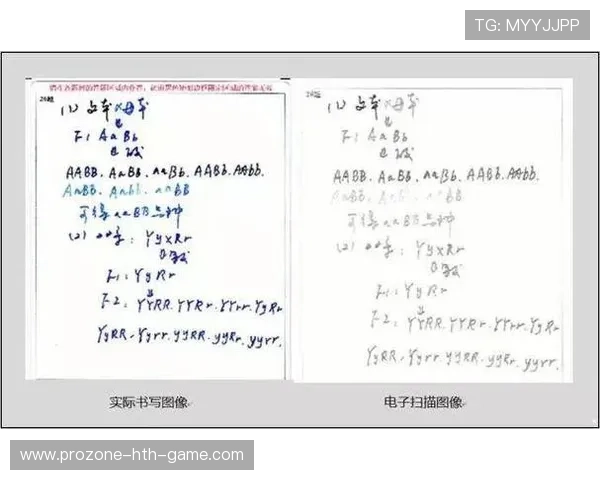 TG: MYYJJPP
请在各题目的答题区域内作答，超出黑色矩形边框限定区域的答案无效
(1)
F1 AaBb
AABB. AaBB. aaBb. AABb. AAbb.
AaBb. Aabb. aaBB
可得aaBB
(2) : YyxRr
F1: YyRr
F2: YYRR. YYRr. YYrr. YyRr
YyRR. Yyrr. yyRR. yyRr. yyrr.
实际书写图像
(1)
F1 AaBb
AABB. AaBB. aaBb. AABb. AAbb.
AaBb. Aabb. aaBB
可得aaBB
(2) : YyxRr
F1: YyRr
F2: YYRR. YYRr. YYrr. YyRr
YyRR. Yyrr. yyRR. yyRr. yyrr.
电子扫描图像
www.prozone-hth-game.com